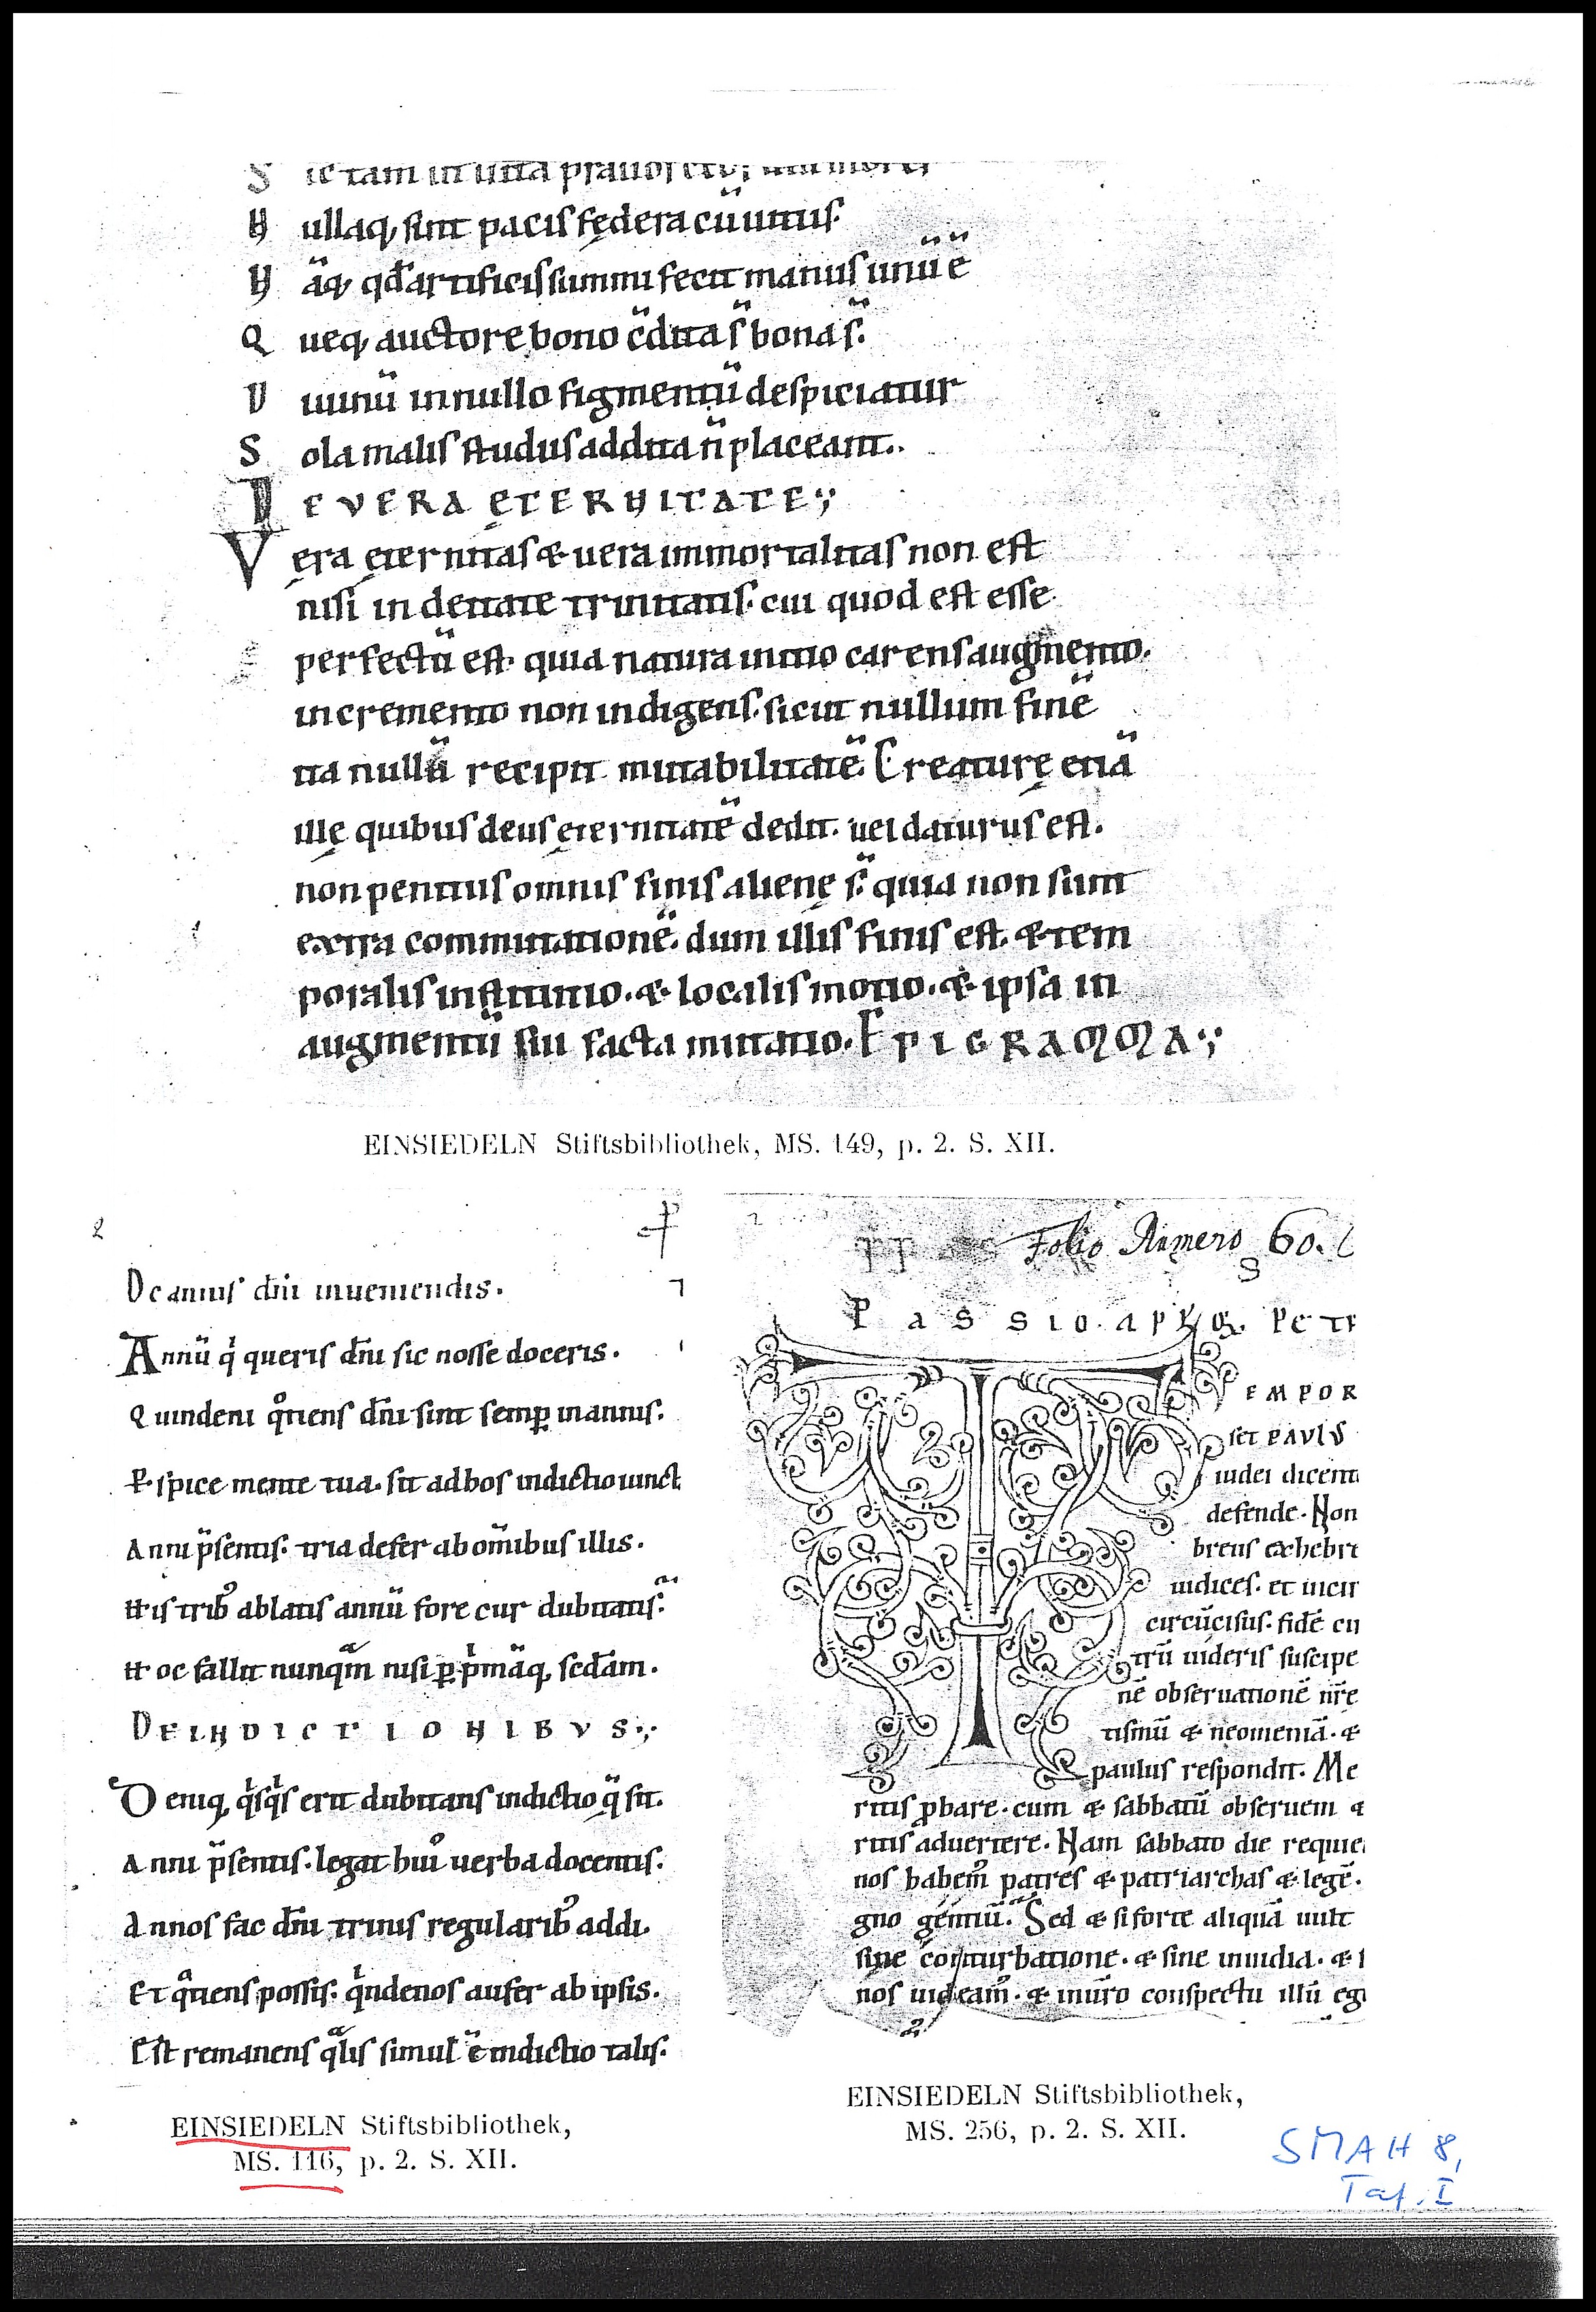 S ic tam in uita prauorum
H ullaq; sint pacis fędera cū uitiis.
H āq; qđ artificis summi fecit manus unū ē
Q ueq; auctore bono c̄dita s̄ bona s̄.
D iuinū in nullo figmentū despiciatur
S ola malis studiis addita n̄ placeant.
DE VERA ĘTERNITATE;
Vera ęternitas & uera immortalitas non est
nisi in deitate trinitatis. cui quod est esse
perfectū est. quia natura initio carens augmento.
incremento non indigens. sicut nullum finē
ita nullū recipit mutabilitatē. Creaturę etiā
illę quibus deus ęternitatē dedit. uel daturus est.
non penitus omnis finis alienę s̄. quia non sunt
extra commutationē. dum illis finis est. & tem
poralis institutio. & localis motio. & ipsa in
augmentū sui facta mutatio. EPIGRAMMA;
EINSIEDELN Stiftsbibliothek, MS. 149, p. 2. S. XII.
2
De annis dn̄i inueniendis.
Annū qi queris dn̄i sic nosse doceris.
Quindeni qotiens dn̄i sint semꝑ in annis.
Rspice mente tua. sit ad hos indictio iunct
Anni p̄sentis. tria defer ab om̄ibus illis.
His trib; ablatis annū fore cur dubitatis.
Hoc fallit nunqam nisi ꝑ pimāq; sedam.
DE INDICTIONIBVS;
Deniq; qisqis erit dubitans indictio q̄ sit.
Anni p̄sentis. legat hui' uerba docentis.
Annos fac dn̄i trinis regularib; addi.
Et qotiens possis. qindenos aufer ab ipsis.
Est remanens qalis simul ē indictio talis.
EINSIEDELN Stiftsbibliothek,
MS. 116, p. 2. S. XII.
Folio Numero 60.
S
PASSIO. APLOꝜ. PETR
TEMPOR
set PAVLS
iudei dicent
defende. Non
breus ex hebre
iudices. et incir
circūcisus. fidē cū
trū uideris suscipe
nē obseruationē nr̄e
tismū & neomeniā. &
paulus respondit. Me
ritis ꝓbare. cum & sabbatū obseruem &
ritis aduertere. Nam sabbato die requie
nos habem' patres & patriarchas & legē.
gno gentiū. Sed & si forte aliquā uult
sine conturbatione. & sine inuidia. &
nos uideam'. & in nr̄o conspectu illū eg
EINSIEDELN Stiftsbibliothek,
MS. 256, p. 2. S. XII.
SMAH 8,
Taf. I